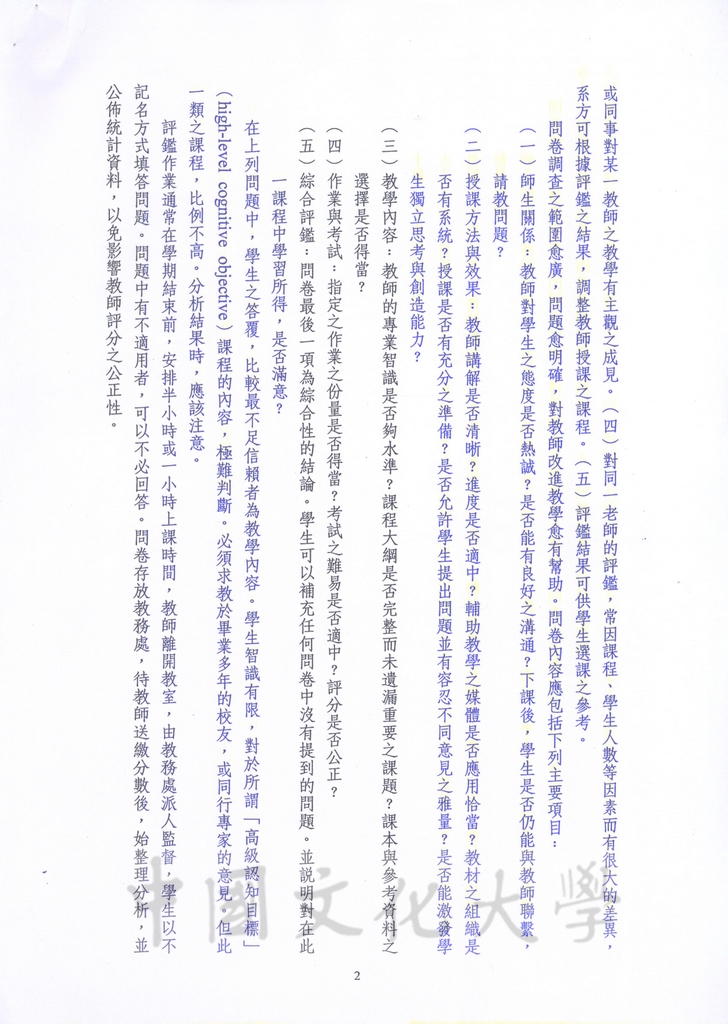 或同事對某一教師之教學有主觀之成見。（四）對同一老師的評鑑，常因課程、學生人數等因素而有很大的差異，
系方可根據評鑑之結果，調整教師授課之課程。（五）評鑑結果可供學生選課之參考。
問卷調查之範圍愈廣，問題愈明確，對教師改進教學愈有幫助。問卷內容應包括下列主要項目：
（一）師生關係：教師對學生之態度是否熱誠？是否能有良好之溝通？下課後，學生是否仍能與教師聯繫，
請教問題？
（二）授課方法與效果：教師講解是否清晰？進度是否適中？輔助教學之媒體是否應用恰當？教材之組織是
否有系統？授課是否有充分之準備？是否允許學生提出問題並有容忍不同意見之雅量？是否能激發學
生獨立思考與創造能力？
（三）教學內容：教師的專業智識是否夠水準？課程大綱是否完整而未遺漏重要之課題？課本與參考資料之
選擇是否得當？
（四）作業與考試：指定之作業之份量是否得當？考試之難易是否適中？評分是否公正？
（五）綜合評鑑：問卷最後一項為綜合性的結論。學生可以補充任何問卷中沒有提到的問題。並説明對在此
一課程中學習所得，是否滿意？
在上列問題中，學生之答覆，比較最不足信賴者為教學內容。學生智識有限，對於所謂「高級認知目標」
（high-level cognitive objective）課程的內容，極難判斷。必須求教於畢業多年的校友，或同行專家的意見。但此
一類之課程，比例不高。分析結果時，應該注意。
評鑑作業通常在學期結束前，安排半小時或一小時上課時間，教師離開教室，由教務處派人監督，學生以不
記名方式填答問題。問題中有不適用者，可以不必回答。問卷存放教務處，待教師送繳分數後，始整理分析，並
公佈統計資料，以免影響教師評分之公正性。
中國文化大學
2